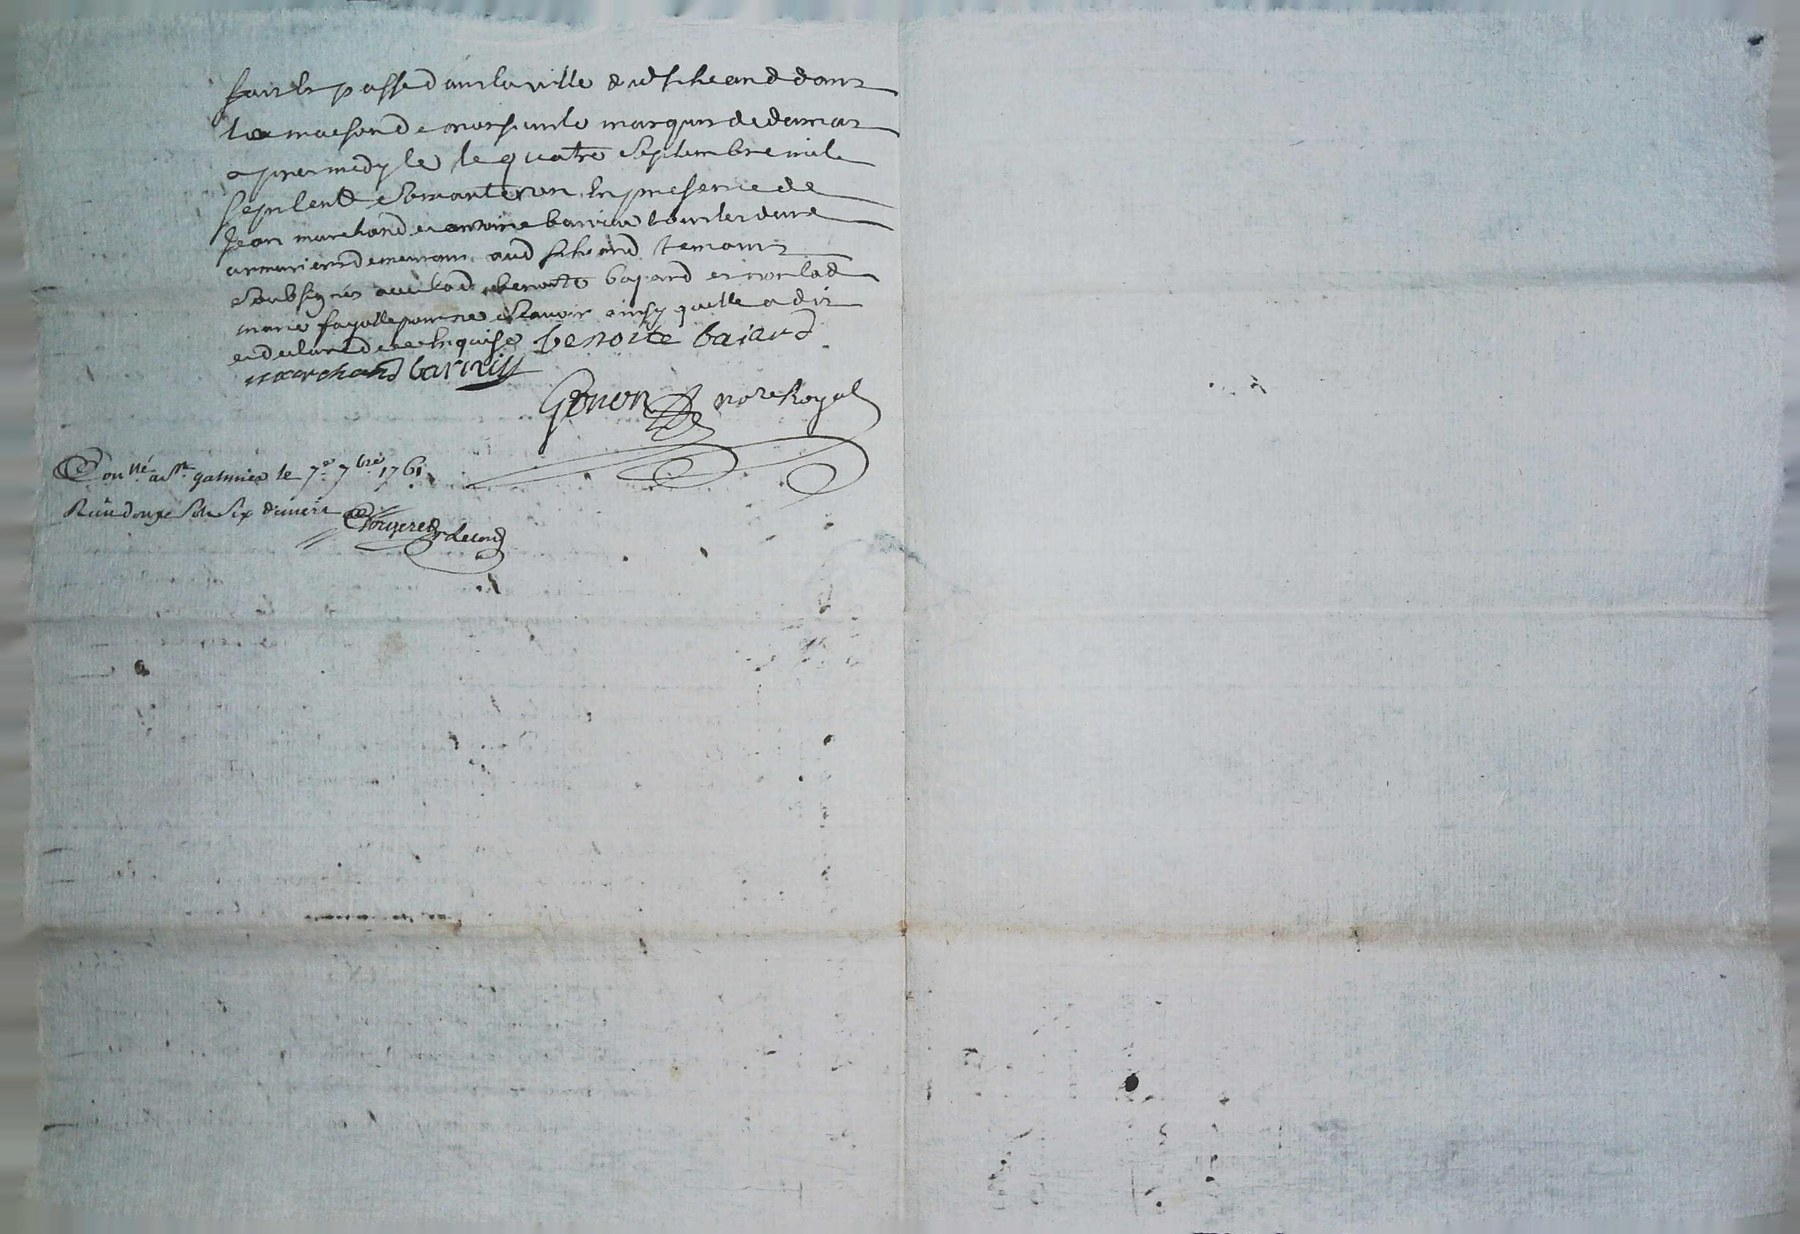 fait et passé dans la ville dud st heand dans
la maison de monsieur le marquis de damas
apres midy le le quatre septembre mile
sept cent soixante un en presence de
jean marchand et antoine barrier tous les deux
demeurant aud st heand temoins
soubsignés avec lad benoite bajard et non lad
marie fayolle pour ne scavoir ainsy quelle a dit
et declaré de ce enquise benoite baiard
marchand barrier
Gonon nore Royal
Con.llé a St galmier le 7e 7bre 1761
Reçu douze sols six deniers